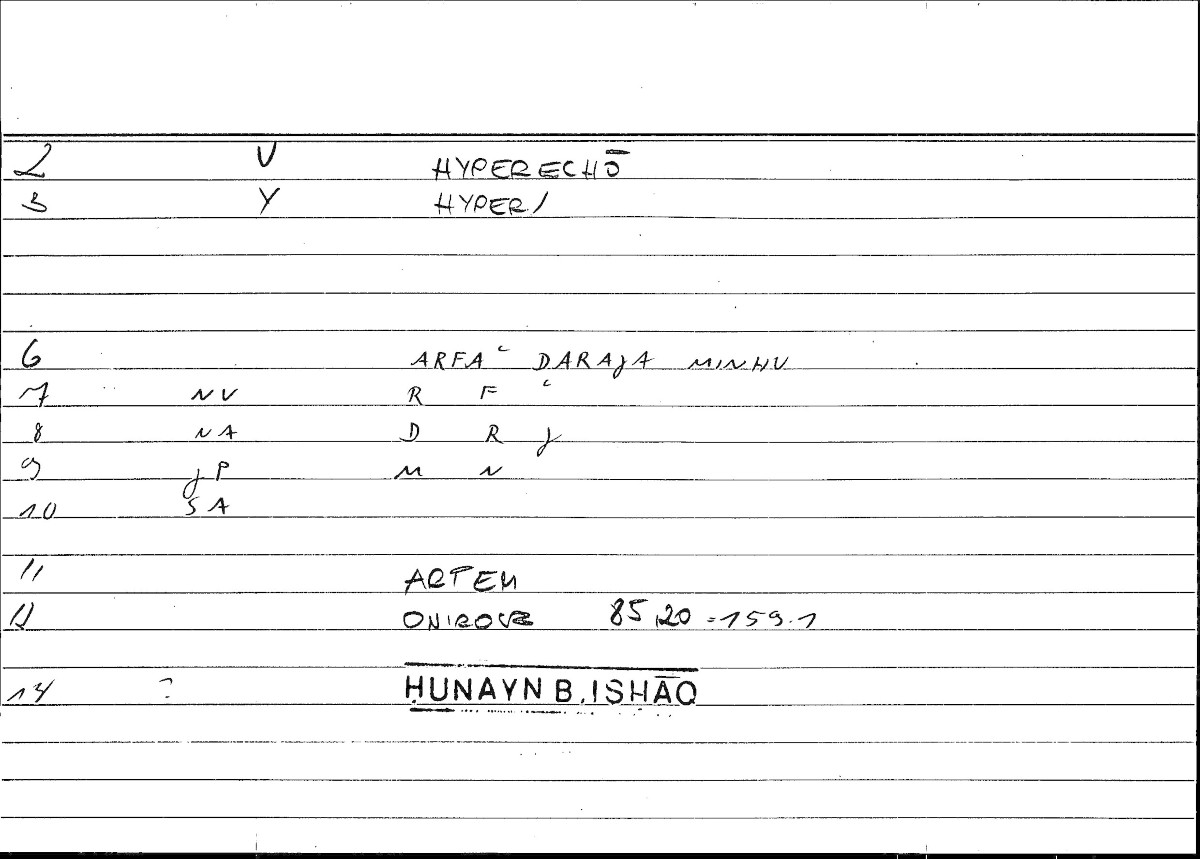 2 V HYPERECHŌ
3 Y HYPER/
6 ARFAʿ DARAJA MINHU
7 NV R F ʿ
8 NA D R J
9 JP M N
10 SA
11 ARTEM
12 ONIROCR 85,20 = 159.1
14 ? ḤUNAYN B. ISḤĀQ